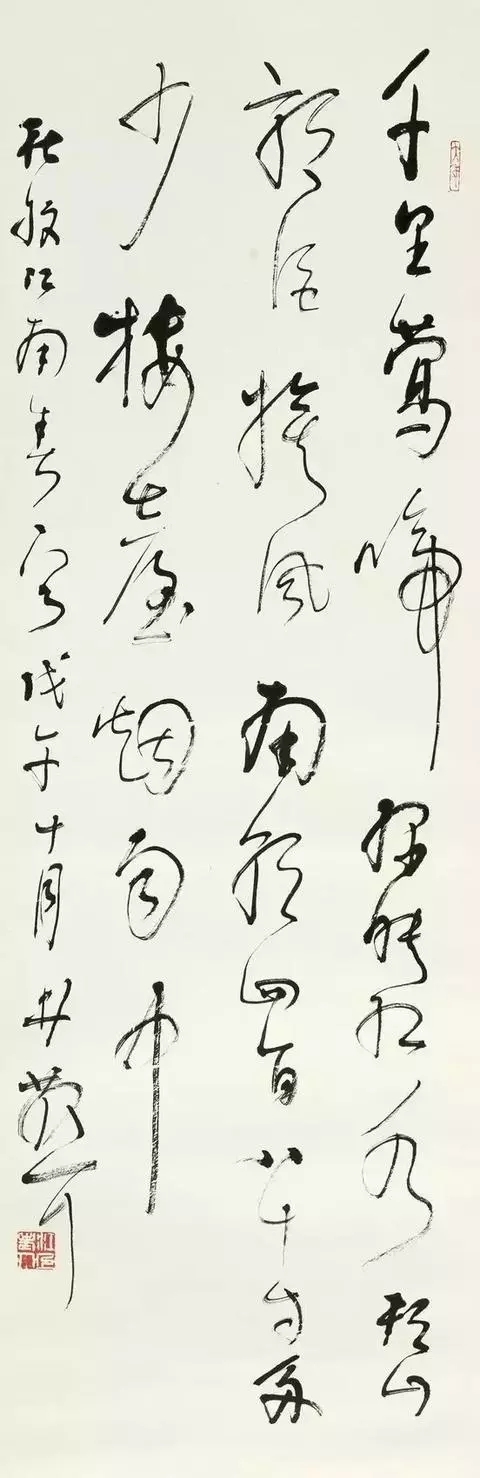 千里鶯啼綠映紅水村山
郭酒旗風南朝四百八十寺多
少樓臺烟雨中
杜牧江南春戊午十月林散耳